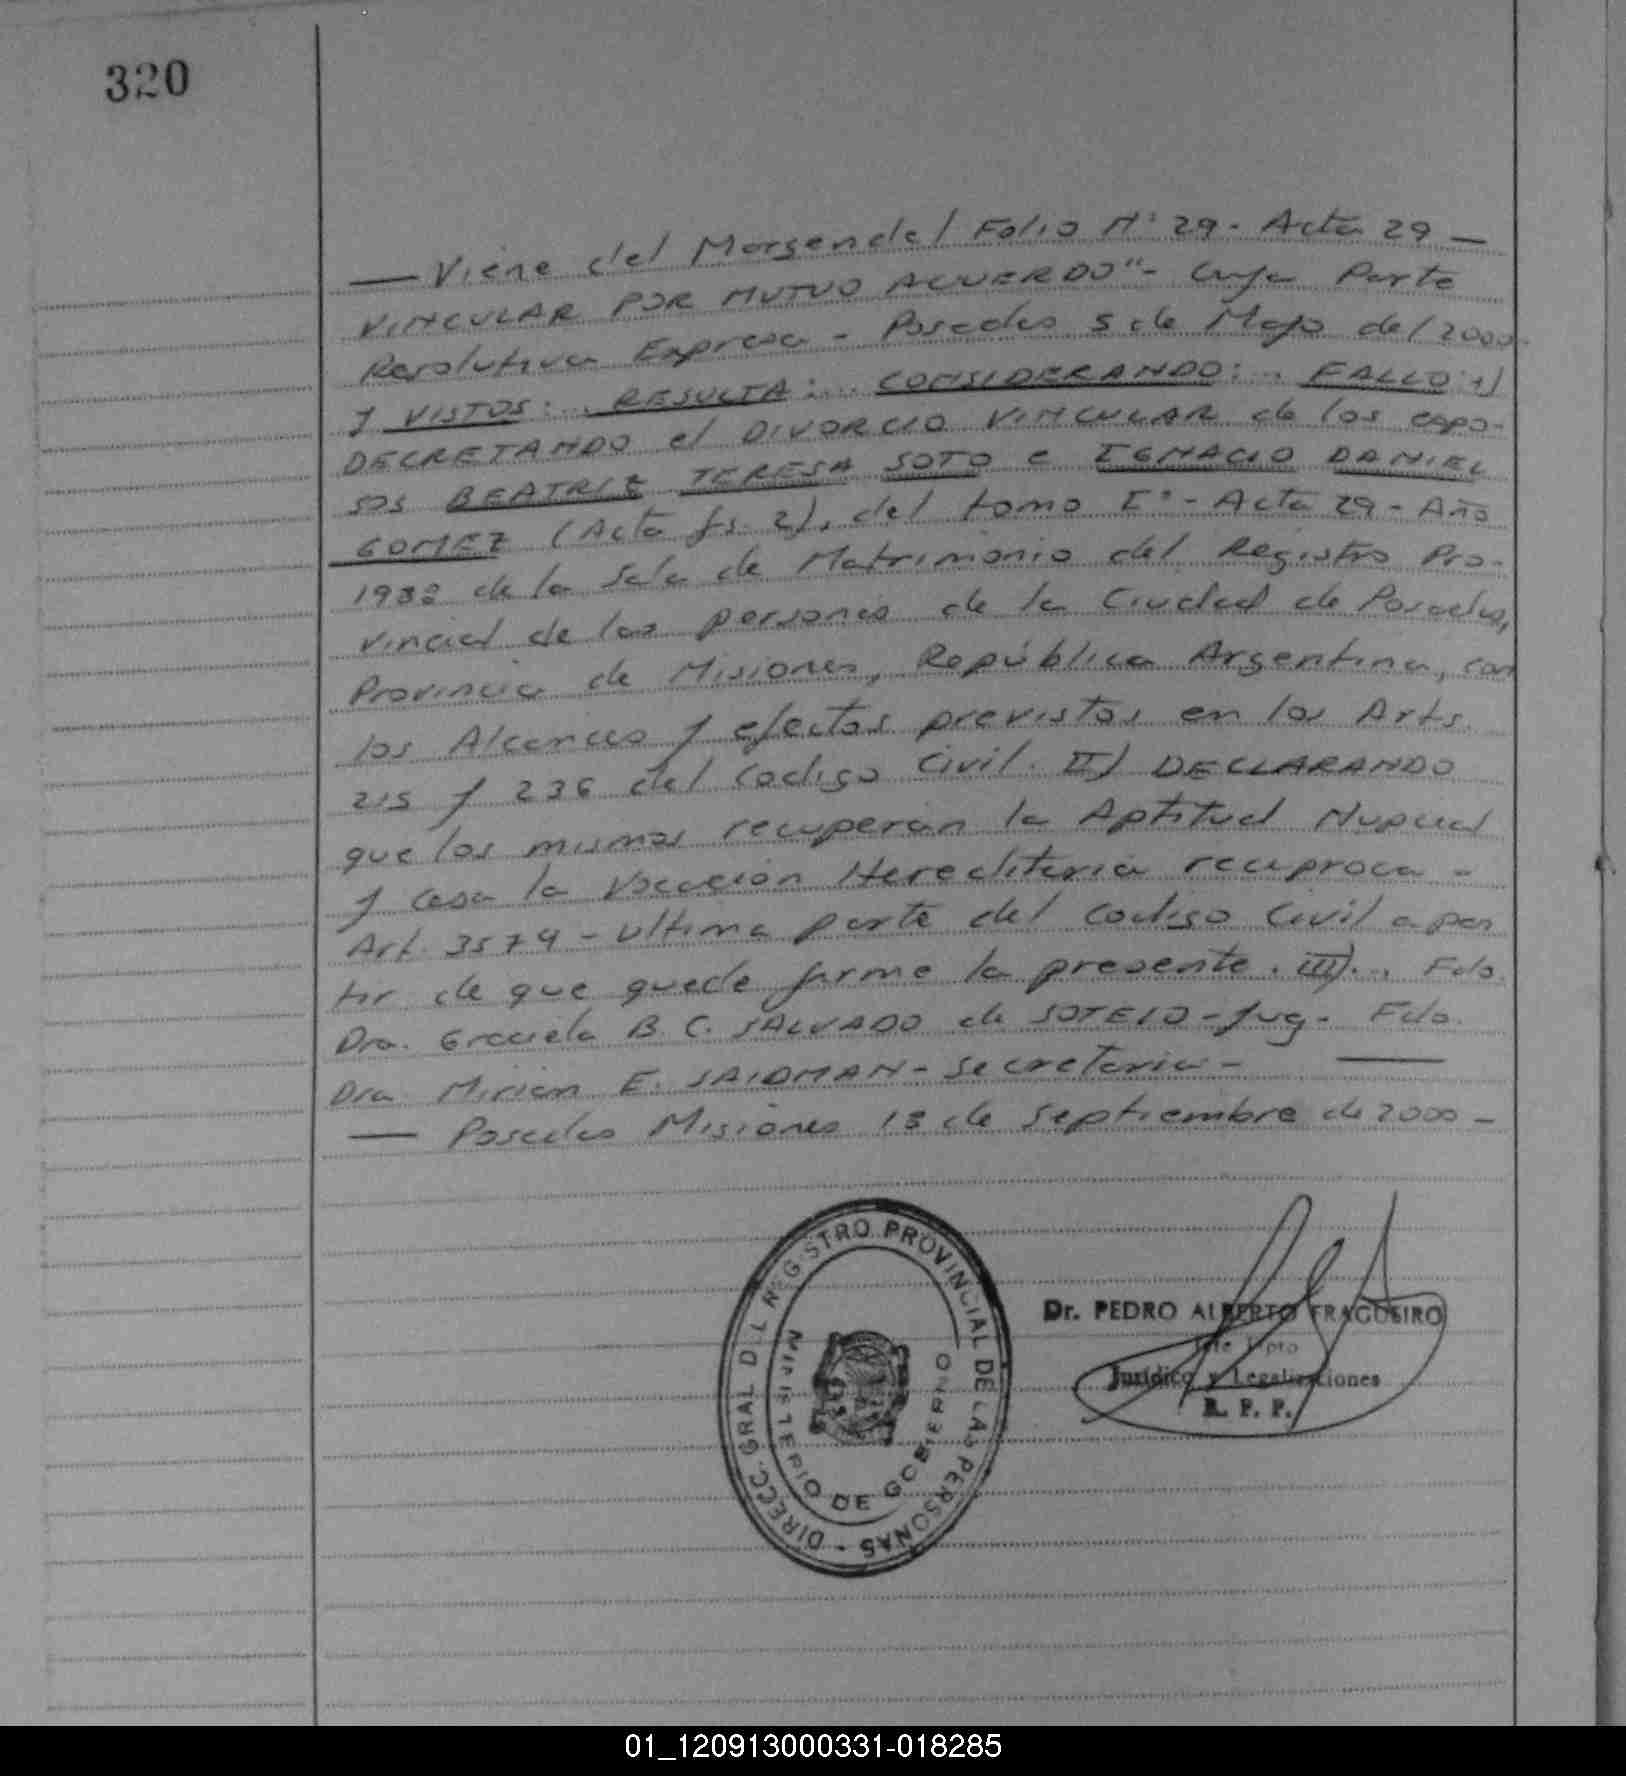 320
— Viene del Margen del Folio N° 29 - Acta 29 —
VINCULAR POR MUTUO ACUERDO" - Cuya Parte
Resolutiva Expresa - Posadas 5 de Mayo del 2000-
y VISTOS:.. RESULTA:.. CONSIDERANDO:.. FALLO: 1)
DECRETANDO el DIVORCIO VINCULAR de los espo-
sos BEATRIZ TERESA SOTO e IGNACIO DANIEL
GOMEZ (Acta fs. 2), del tomo I° - Acta 29 - Año
1982 de la Sala de Matrimonio del Registro Pro-
vincial de las personas de la Ciudad de Posadas,
Provincia de Misiones, República Argentina, con
los Alcances y efectos previstos en los Arts.
215 y 236 del Codigo Civil. II) DECLARANDO
que los mismos recuperan la Aptitud Nupcial
y cesa la Vocacion Hereditaria reciproca -
Art. 3574 - Ultima parte del Codigo Civil a par
tir de que quede firme la presente. III).. Fdo.
Dra. Graciela B. C. SALVADO de SOTELO - Jug - Fdo.
Dra. Mirian E. SAIDMAN - Secretaria - —
— Posadas Misiones 13 de Septiembre de 2000 -
DIRECC. GRAL DEL REGISTRO PROVINCIAL DE LAS PERSONAS -
MINISTERIO DE GOBIERNO
Dr. PEDRO ALBERTO FRAGUEIRO
Jefe Dpto
Jurídico y Legalizaciones
R. P. P.
01_120913000331-018285